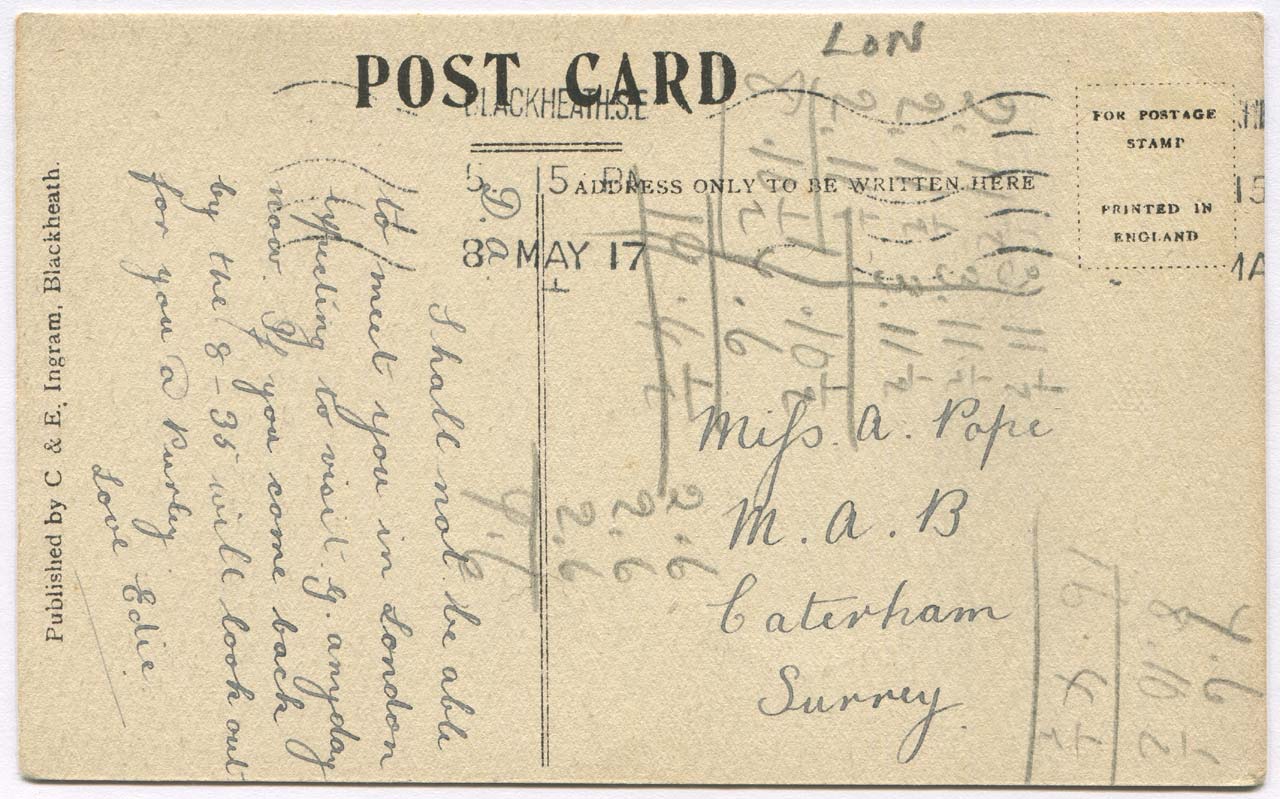 LON
POST CARD
BLACKHEATH.S.E
5 15 PM
8 MAY 17
ADDRESS ONLY TO BE WRITTEN HERE
FOR POSTAGE
STAMP
PRINTED IN
ENGLAND
Published by C & E. Ingram, Blackheath.
D. a.
Shall not be able
to meet you in London
expecting to visit G. anyday
now. If you come back
by the 8-35 will look out
for you @ Purley
Love Edie.
Miss. A. Pope
M. A. B
Caterham
Surrey.
2.6
2.6
2.6
7.6